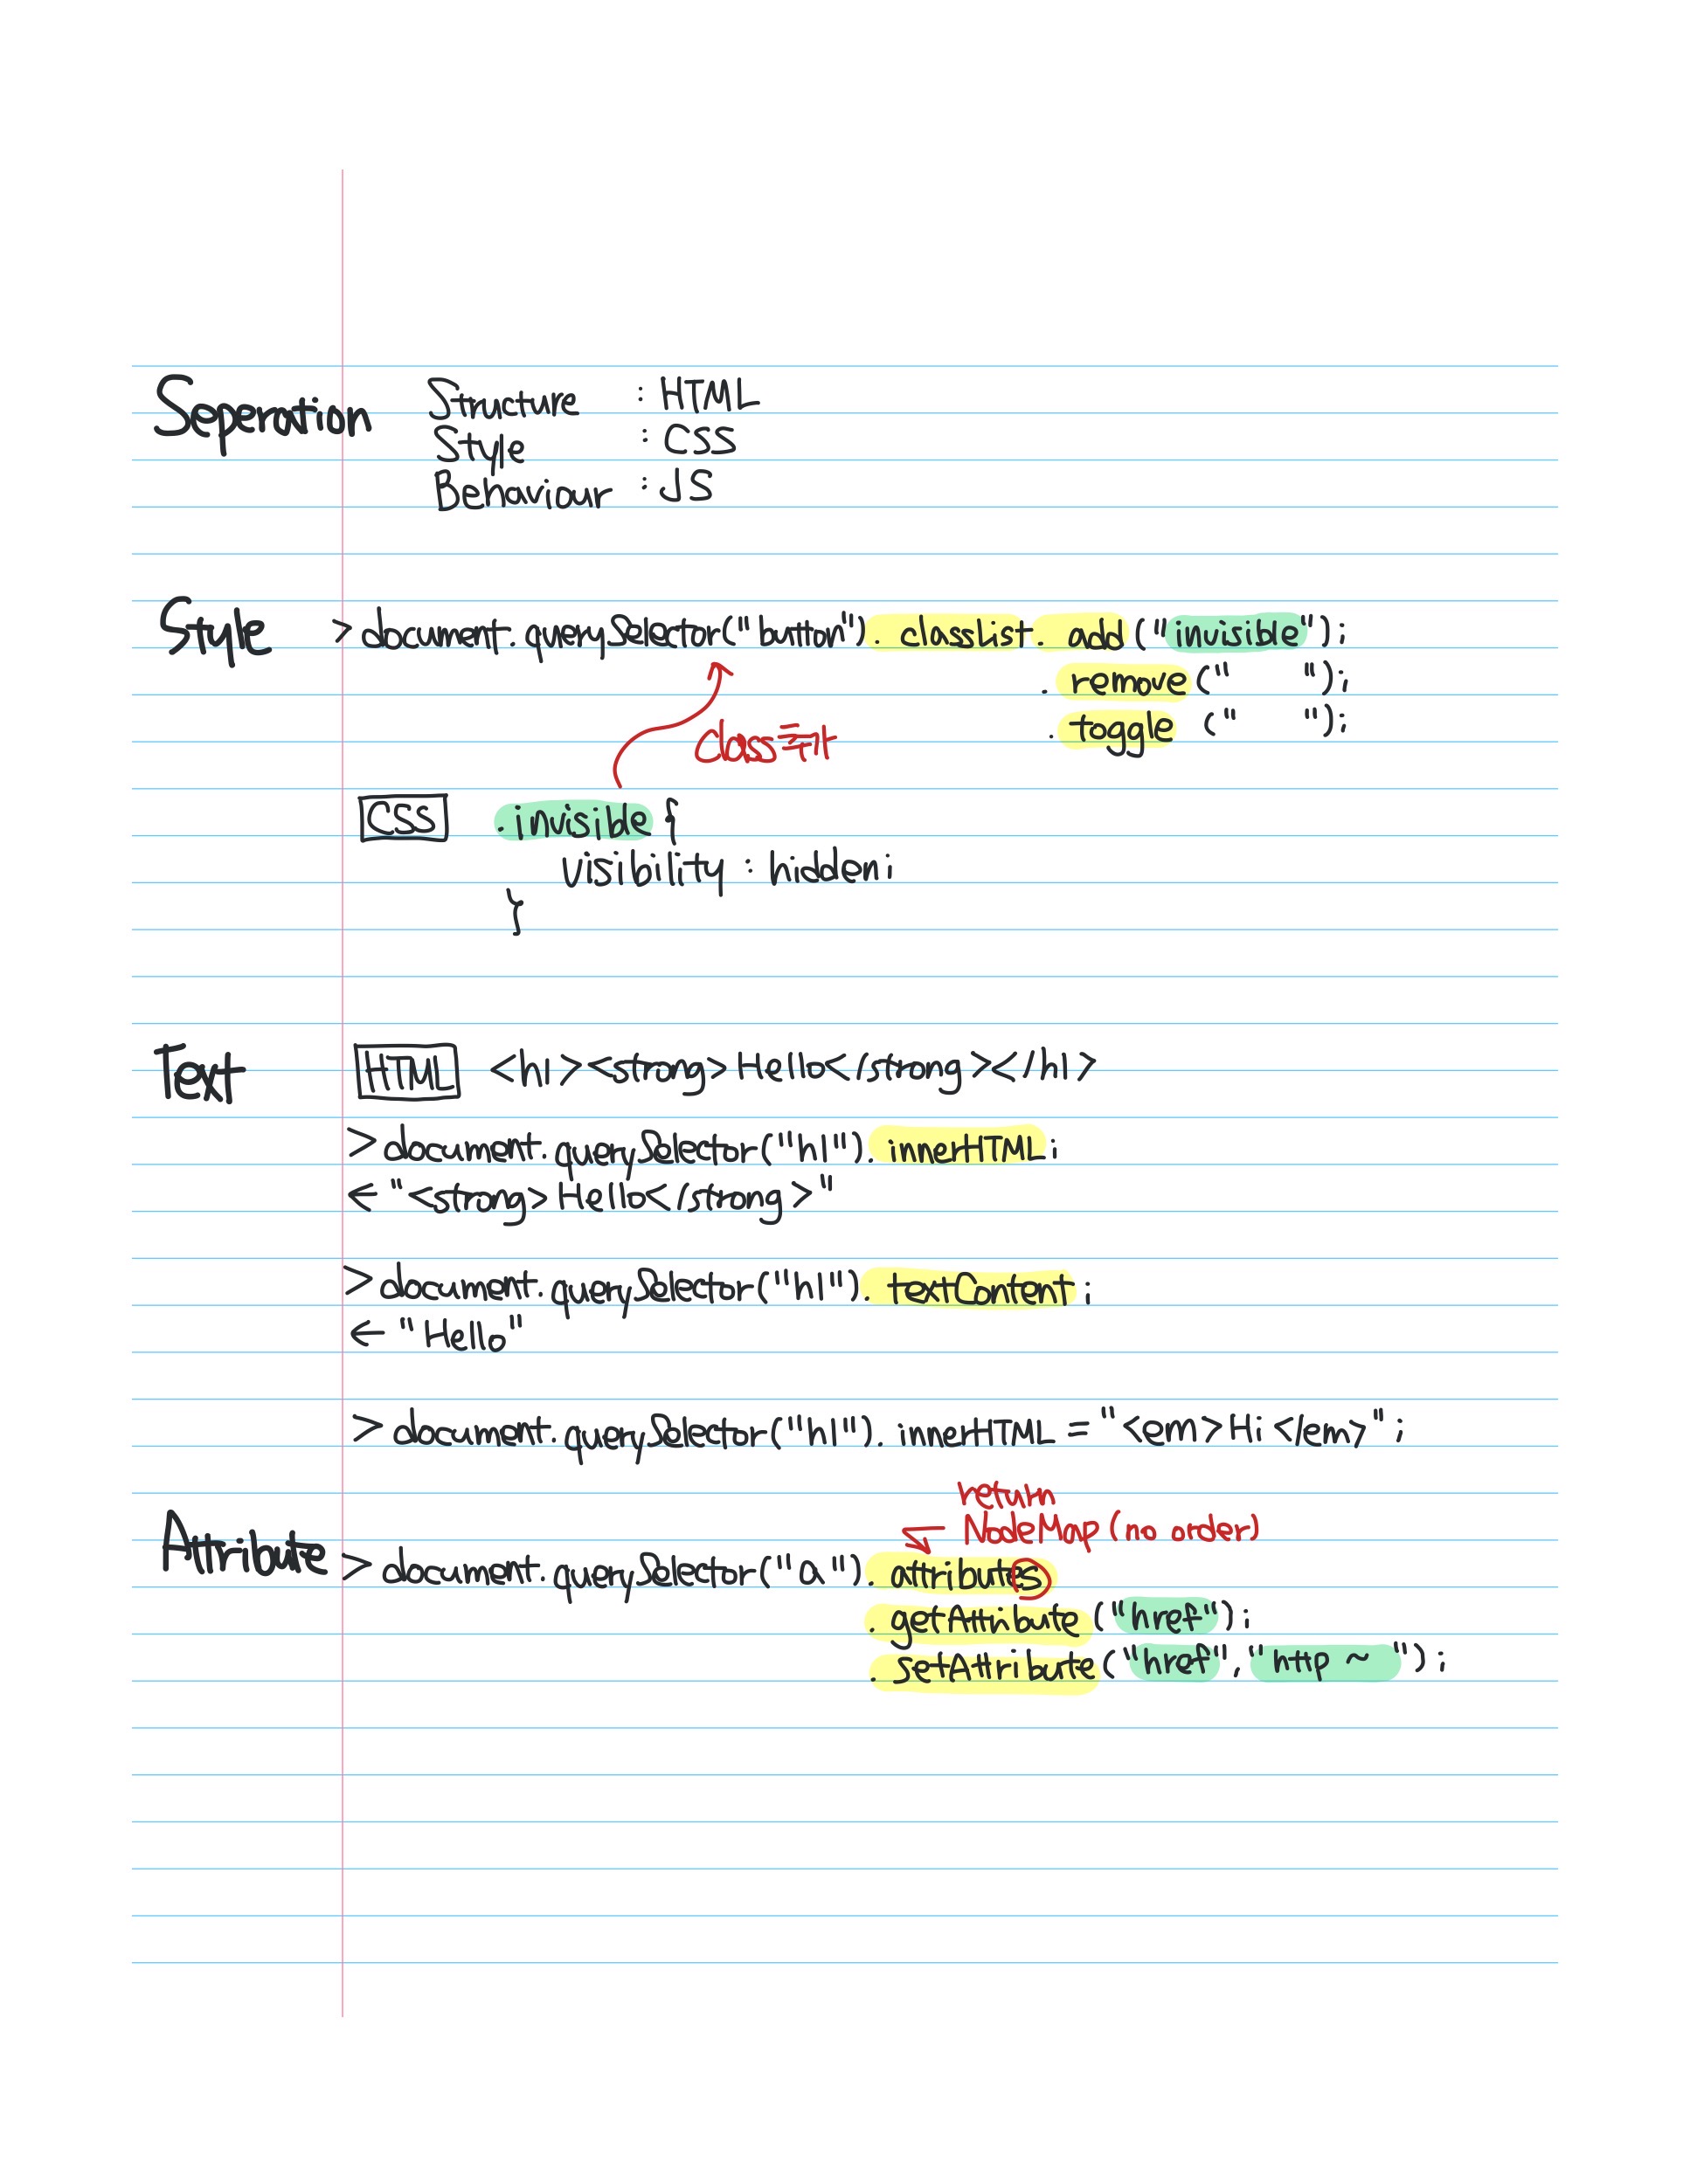 Seperation
Structure : HTML
Style : CSS
Behaviour : JS
Style > document.querySelector("button").classList.add("invisible");
.remove("    ");
.toggle("    ");
Class추가
CSS .invisible {
visibility : hidden;
}
Text HTML <h1><strong>Hello</strong></h1>
> document.querySelector("h1").innerHTML;
← "<strong>Hello</strong>"
> document.querySelector("h1").textContent;
← "Hello"
> document.querySelector("h1").innerHTML = "<em>Hi</em>";
return
← NodeMap (no order)
Attribute > document.querySelector("a").attributes
.getAttribute("href");
.setAttribute("href","http ~ ");